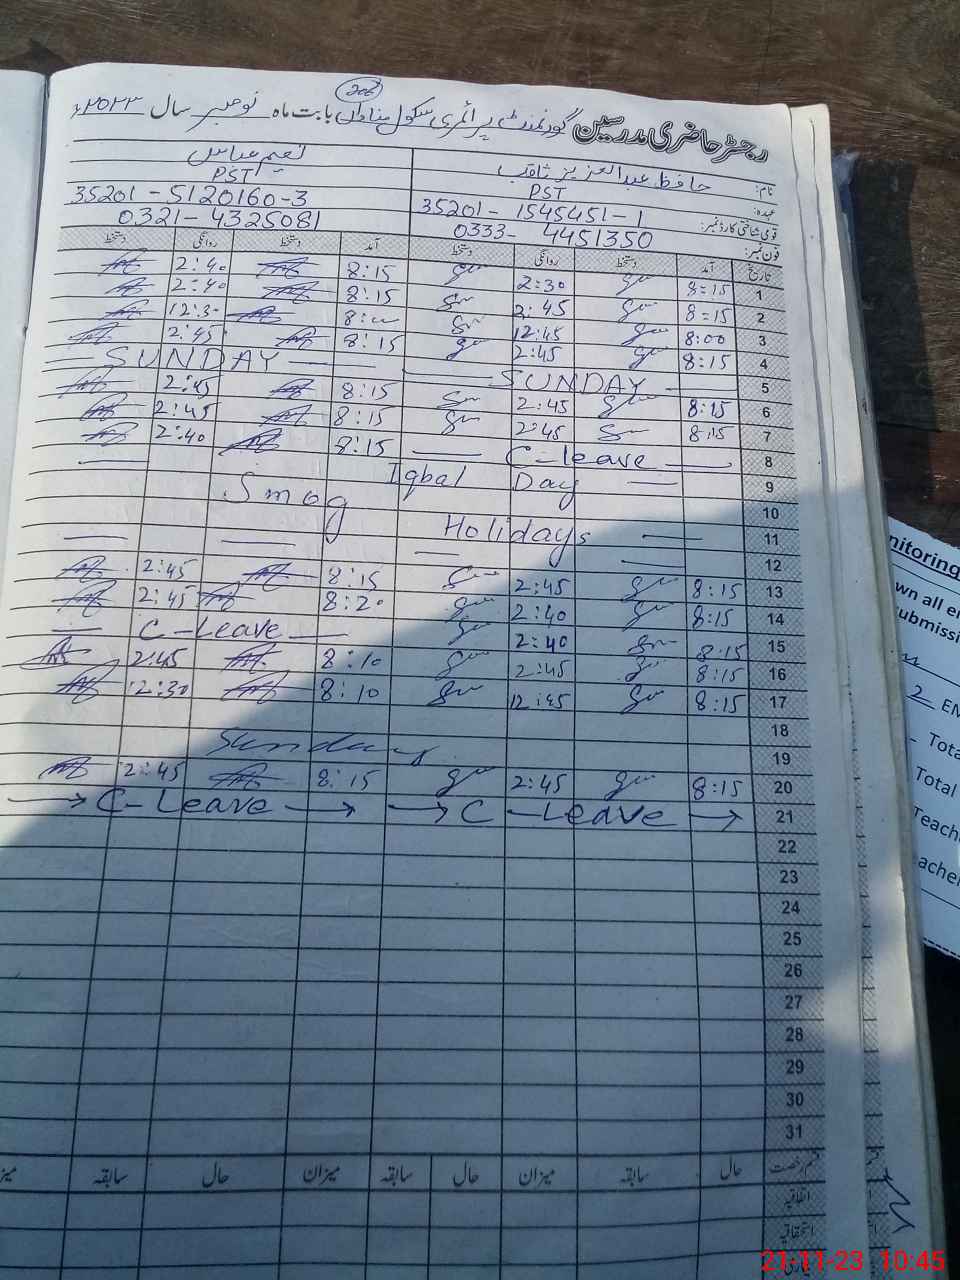 206
رجسٹر حاضری مدرسین گورنمنٹ پرائمری سکول مناواں بابت ماہ نومبر سال ۲۰۲۳ء
نام: حافظ عبدالعزیز ثاقب نعیم عباس
عہدہ: PST PST
قومی شناختی کارڈ نمبر: 35201 - 1545451-1 35201 - 5120160-3
فون نمبر: 0333- 4451350 0321-4325081
تاریخ آمد دستخط روانگی دستخط آمد دستخط روانگی دستخط
1 8:15 2:30 8:15 2:40
2 8:15 2:45 8:15 2:40
3 8:00 12:45 8:00 12:30
4 8:15 2:45 8:15 2:45
5 SUNDAY SUNDAY
6 8:15 2:45 8:15 2:45
7 8:15 2:45 8:15 2:45
8 C-leave 8:15 2:40
9 Iqbal Day
10 Smog
11 Holidays
12
13 8:15 2:45 8:15 2:45
14 8:15 2:40 8:20 2:45
15 8:15 2:40 C-Leave
16 8:15 2:45 8:10 2:45
17 8:15 12:45 8:10 12:30
18
19 Sunday
20 8:15 2:45 8:15 2:45
21 C-Leave C-Leave
22
23
24
25
26
27
28
29
30
31
قسم رخصت حال سابقہ میزان حال سابقہ میزان حال سابقہ
اتفاقیہ
استحقاقیہ
nitoring
wn all e
submissi
2 EM
Tota
Total
Teach
acher
21-11-23 10:45